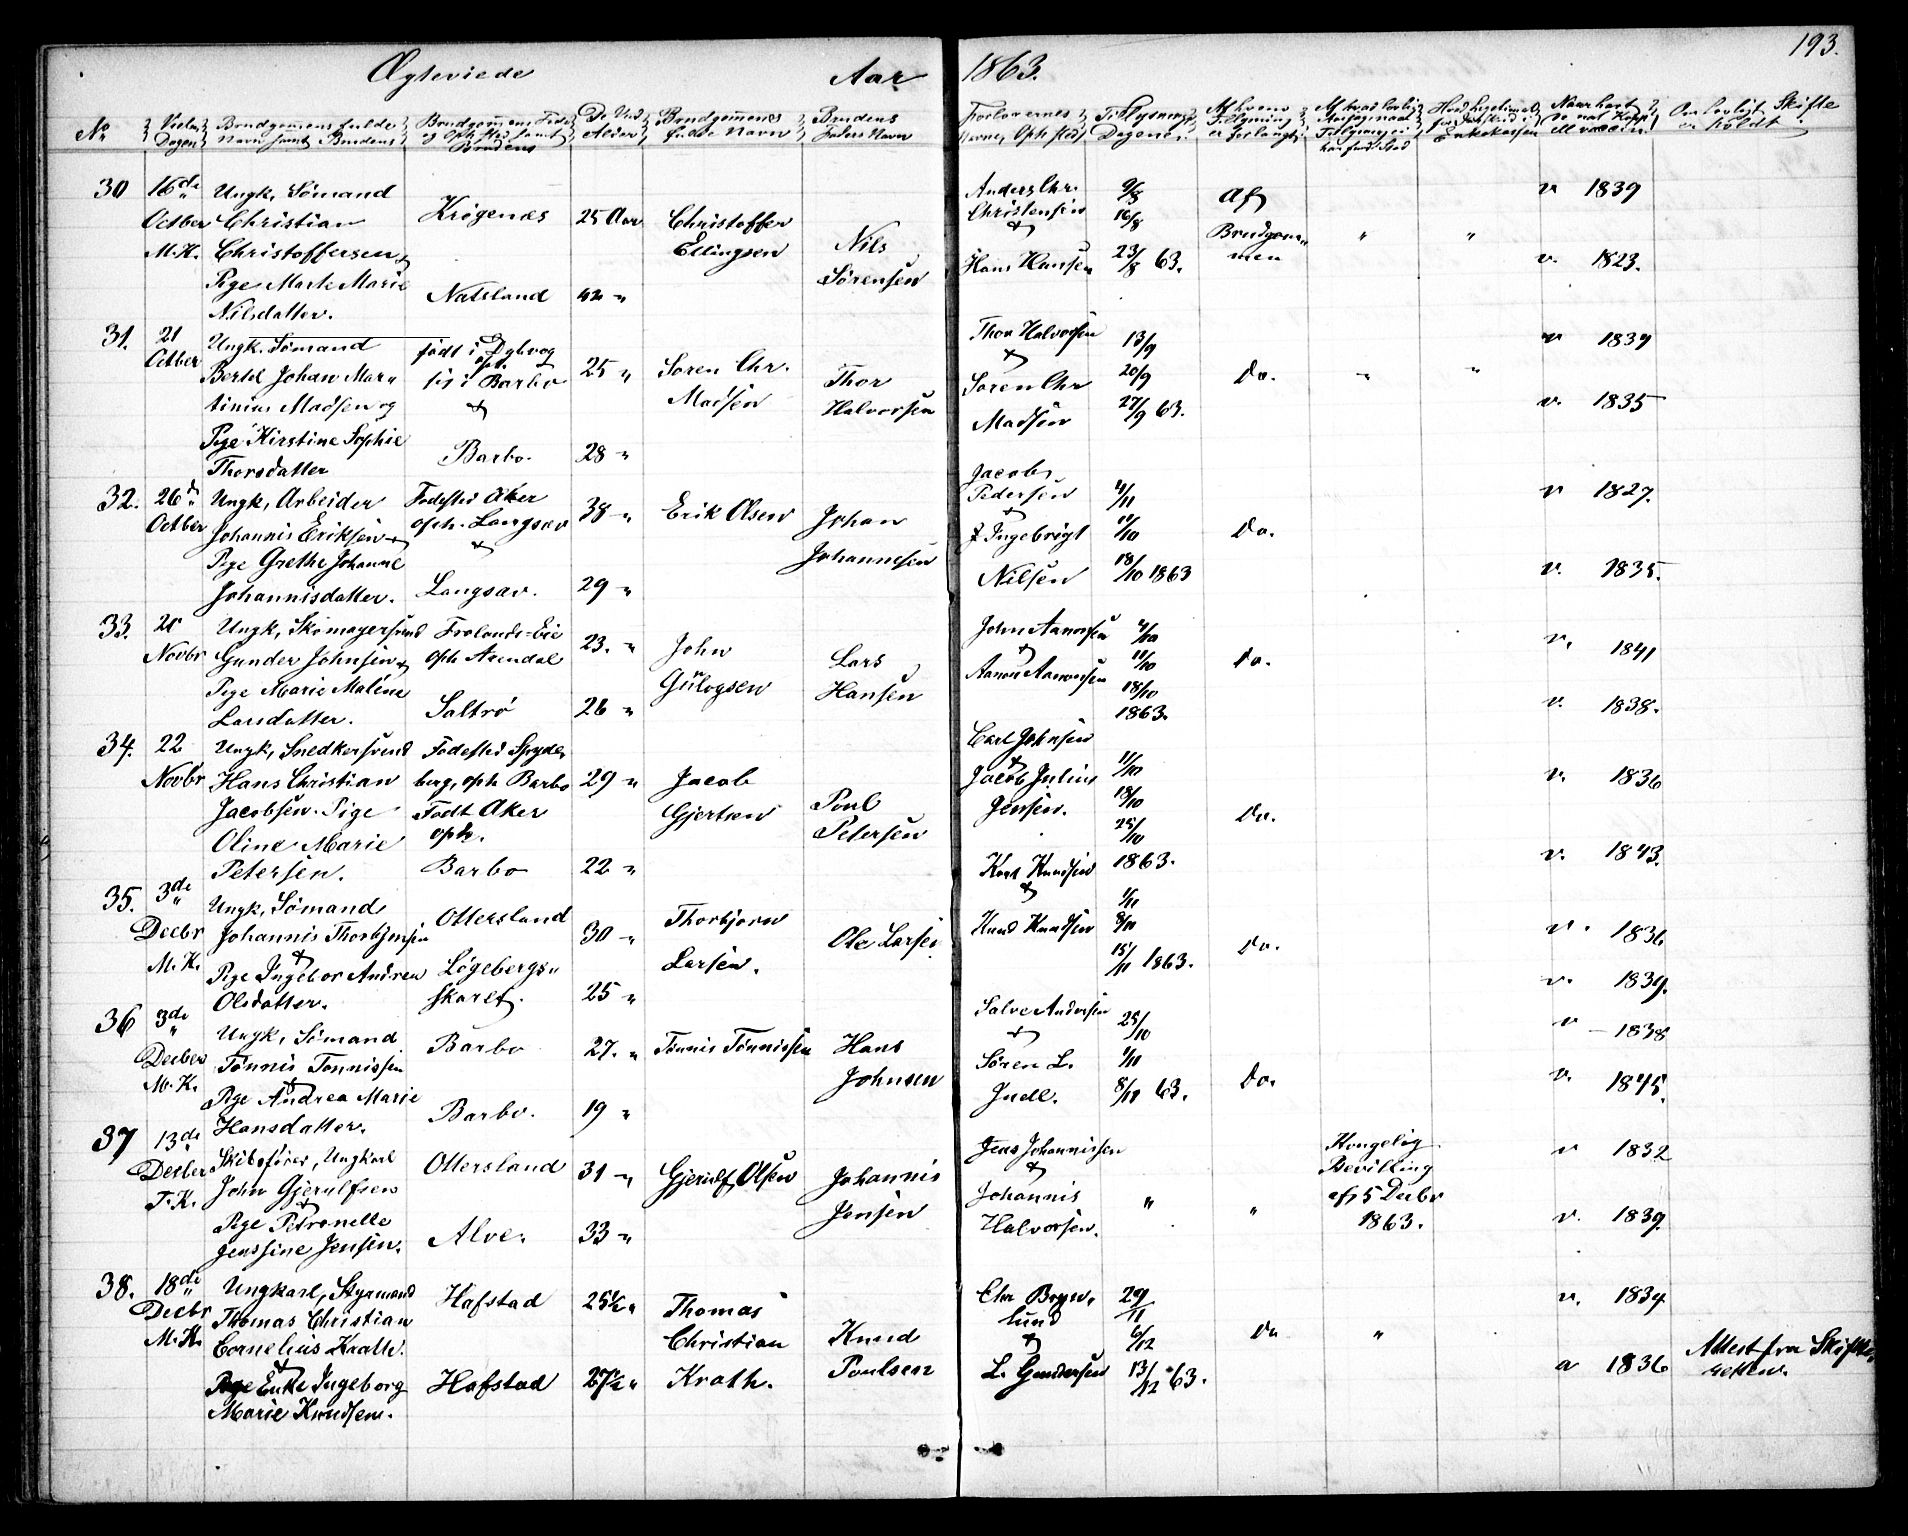 193.
Ægteviede Aar 1863.
No
30 16de Octber M.K.
Ungk, Sømand
Christian
Christoffersen
Pige Marte Marie
Nilsdatter.
Krøgenæs 25 Aar
Natsland 42 "
Christoffer
Ellingsen
Nils
Sørensen
Anders Chr.
Christensen
&
Hans Hansen
9/8
16/8
23/8 63.
Af
Brudgom-
men
" "
v 1839
v. 1823.
31. 21 Octber
Ungk. Sømand
Bertel Johan Mar-
tinius Madsen og
Pige Kirstine Sophie
Thorsdatter
født i Dybvog
oph.
& Barbo.
25 "
28 "
Søren Chr.
Madsen
Thor
Halvorsen
Thor Halvorsen
&
Søren Chr
Madsen
13/9
20/9
27/9 63.
Do.
" "
v 1839
v. 1835
32. 26d Octber
Ungk, Arbeider
Johannis Eriksen
Pige Grethe Johanne
Johannisdatter.
Fødested Aker
oph. Langsæv
&
Langsæv.
38 "
29 "
Erik Olsen
Johan
Johannesen
Jacob
Pedersen
&
Ingebrigt
Nilsen
4/11
11/10
18/10 1863
Do.
v 1827.
v. 1835.
33. 21 Novbr
Ungk, Skomagersvend
Gunder Johnsen &
Pige Marie Maline
Larsdatter.
Frolands-Eie
oph Arendal
Saltrø
23. "
26 "
John
Gulovsen
Lars
Hansen
John Aanonsen
&
Aanon Aanonsen
4/10
11/10
18/10
1863.
Do.
v. 1841
v. 1838.
34. 22 Novbr
Ungk, Snedkersvend
Hans Christian
Jacobsen. Pige
Oline Marie
Petersen.
Fødested Spyde-
berg, oph Barbo
Født Aker
oph.
Barbo
29 "
22 "
Jacob
Gjertsen
Poul
Petersen
Carl Johnsen
&
Jacob Julius
Jensen.
11/10
18/10
25/10
1863.
Do.
v. 1836
v. 1843.
35. 3de Decbr M.K.
Ungk, Sømand
Johannis Thorbjørnsen
&
Pige Ingebor Andrea
Olsdatter.
Ottersland
Løgebergs-
skaret.
30 "
25 "
Thorbjørn
Larsen.
Ole Larsen
Knut Knudsen
&
Knud Knudsen
1/11
8/11
15/11 1863.
Do.
v. 1836
v. 1839.
36 3de Decber M.K.
Ungk, Sømand
Tønnis Tønnissen
&
Pige Andrea Marie
Hansdatter.
Barbo
Barbo.
27. "
19 "
Tønnis Tønnissen
Hans
Johnsen
Salve Andersen
&
Søren L.
Juell.
25/10
1/11
8/11 63.
Do.
v 1838
v. 1845.
37 13de Decber T.K.
Skibsfører, Ungkarl
John Gjerulfsen
&
Pige Petronelle
Jenssine Jensen.
Ottersland
Alve.
31 "
33 "
Gjerulf Olsen
Johannis
Jensen
Jens Johannissen
&
Johannis
Halvorsen.
" "
Kongelig
Bevilling
af 5 Decbr
1863.
v 1832
v. 1839.
38. 18de Decbr M.K.
Ungkarl, Styrmand
Thomas Christian
Cornelius Krath.
&
Pige Enke Ingeborg
Marie Knudsen.
Hafstad
Hafstad
25½ "
27½ "
Thomas
Christian
Krath.
Knud
Poulsen
Chr Bryn-
lund
&
L. Gundersen
29/11
6/12
13/12 63.
Do
"
v. 1834
a 1836
Attest fra Skifte-
retten.